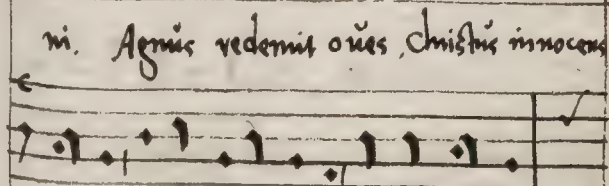 ni. Agnus redemit oues, Christus innocens